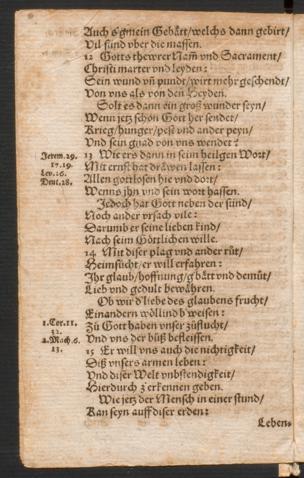 Auch s'gmein Gebått/welchs dann gebirt/
Vil sünd vber die massen.
12 Gotts thewrer Nam̃ vnd Sacrament/
Christi marter vnd leyden:
Sein wund vn̄ pundt/wirt mehr geschendt/
Von vns als von den Heyden.
Solt es dann ein groß wunder seyn/
Wenn jetz schon Gott her sendet/
Krieg/hunger/pest vnd ander peyn/
Vnd sein gnad von vns wendet?
Jerem.29.
17.19.
Lev.26.
Deut.28.
13 Wie ers dann in seim heilgen Wort/
Mit ernst hat dråwen lassen:
Allen gottlosen hie vnd dort/
Wenns jhn vnd sein wort hassen.
Jedoch hat Gott neben der sünd/
Noch ander vrsach vile:
Darumb er seine lieben kind/
Nach seim Göttlichen wille.
14 Mit diser plag vnd ander rüt/
Heimsücht/er will erfahren:
Ihr glaub/hoffnung/g'bått vnd demüt/
Lieb vnd gedult bewåhren.
Ob wir d'liebe des glaubens frucht/
Einandern wöllind b'weisen:
1.Cor.11.
32.
2.Mach.6.
13.
Zü Gott haben vnser züflucht/
Vnd vns der büß befleissen.
15 Er will vns auch die nichtigkeit/
Diß vnsers armen leben:
Vnd diser Welt vnbstendigkeit/
Hierdurch z'erkennen geben.
Wie jetz der Mensch in einer stund/
Kan seyn auff diser erden:
Leben-